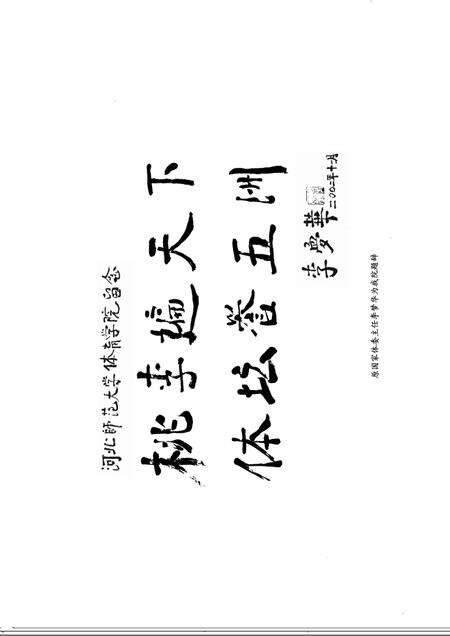 河北師范大学体育学院留念
桃李遍天下
体坛誉五洲
李夢華 二00二年十一月
原国家体委主任李梦华为我院题辞